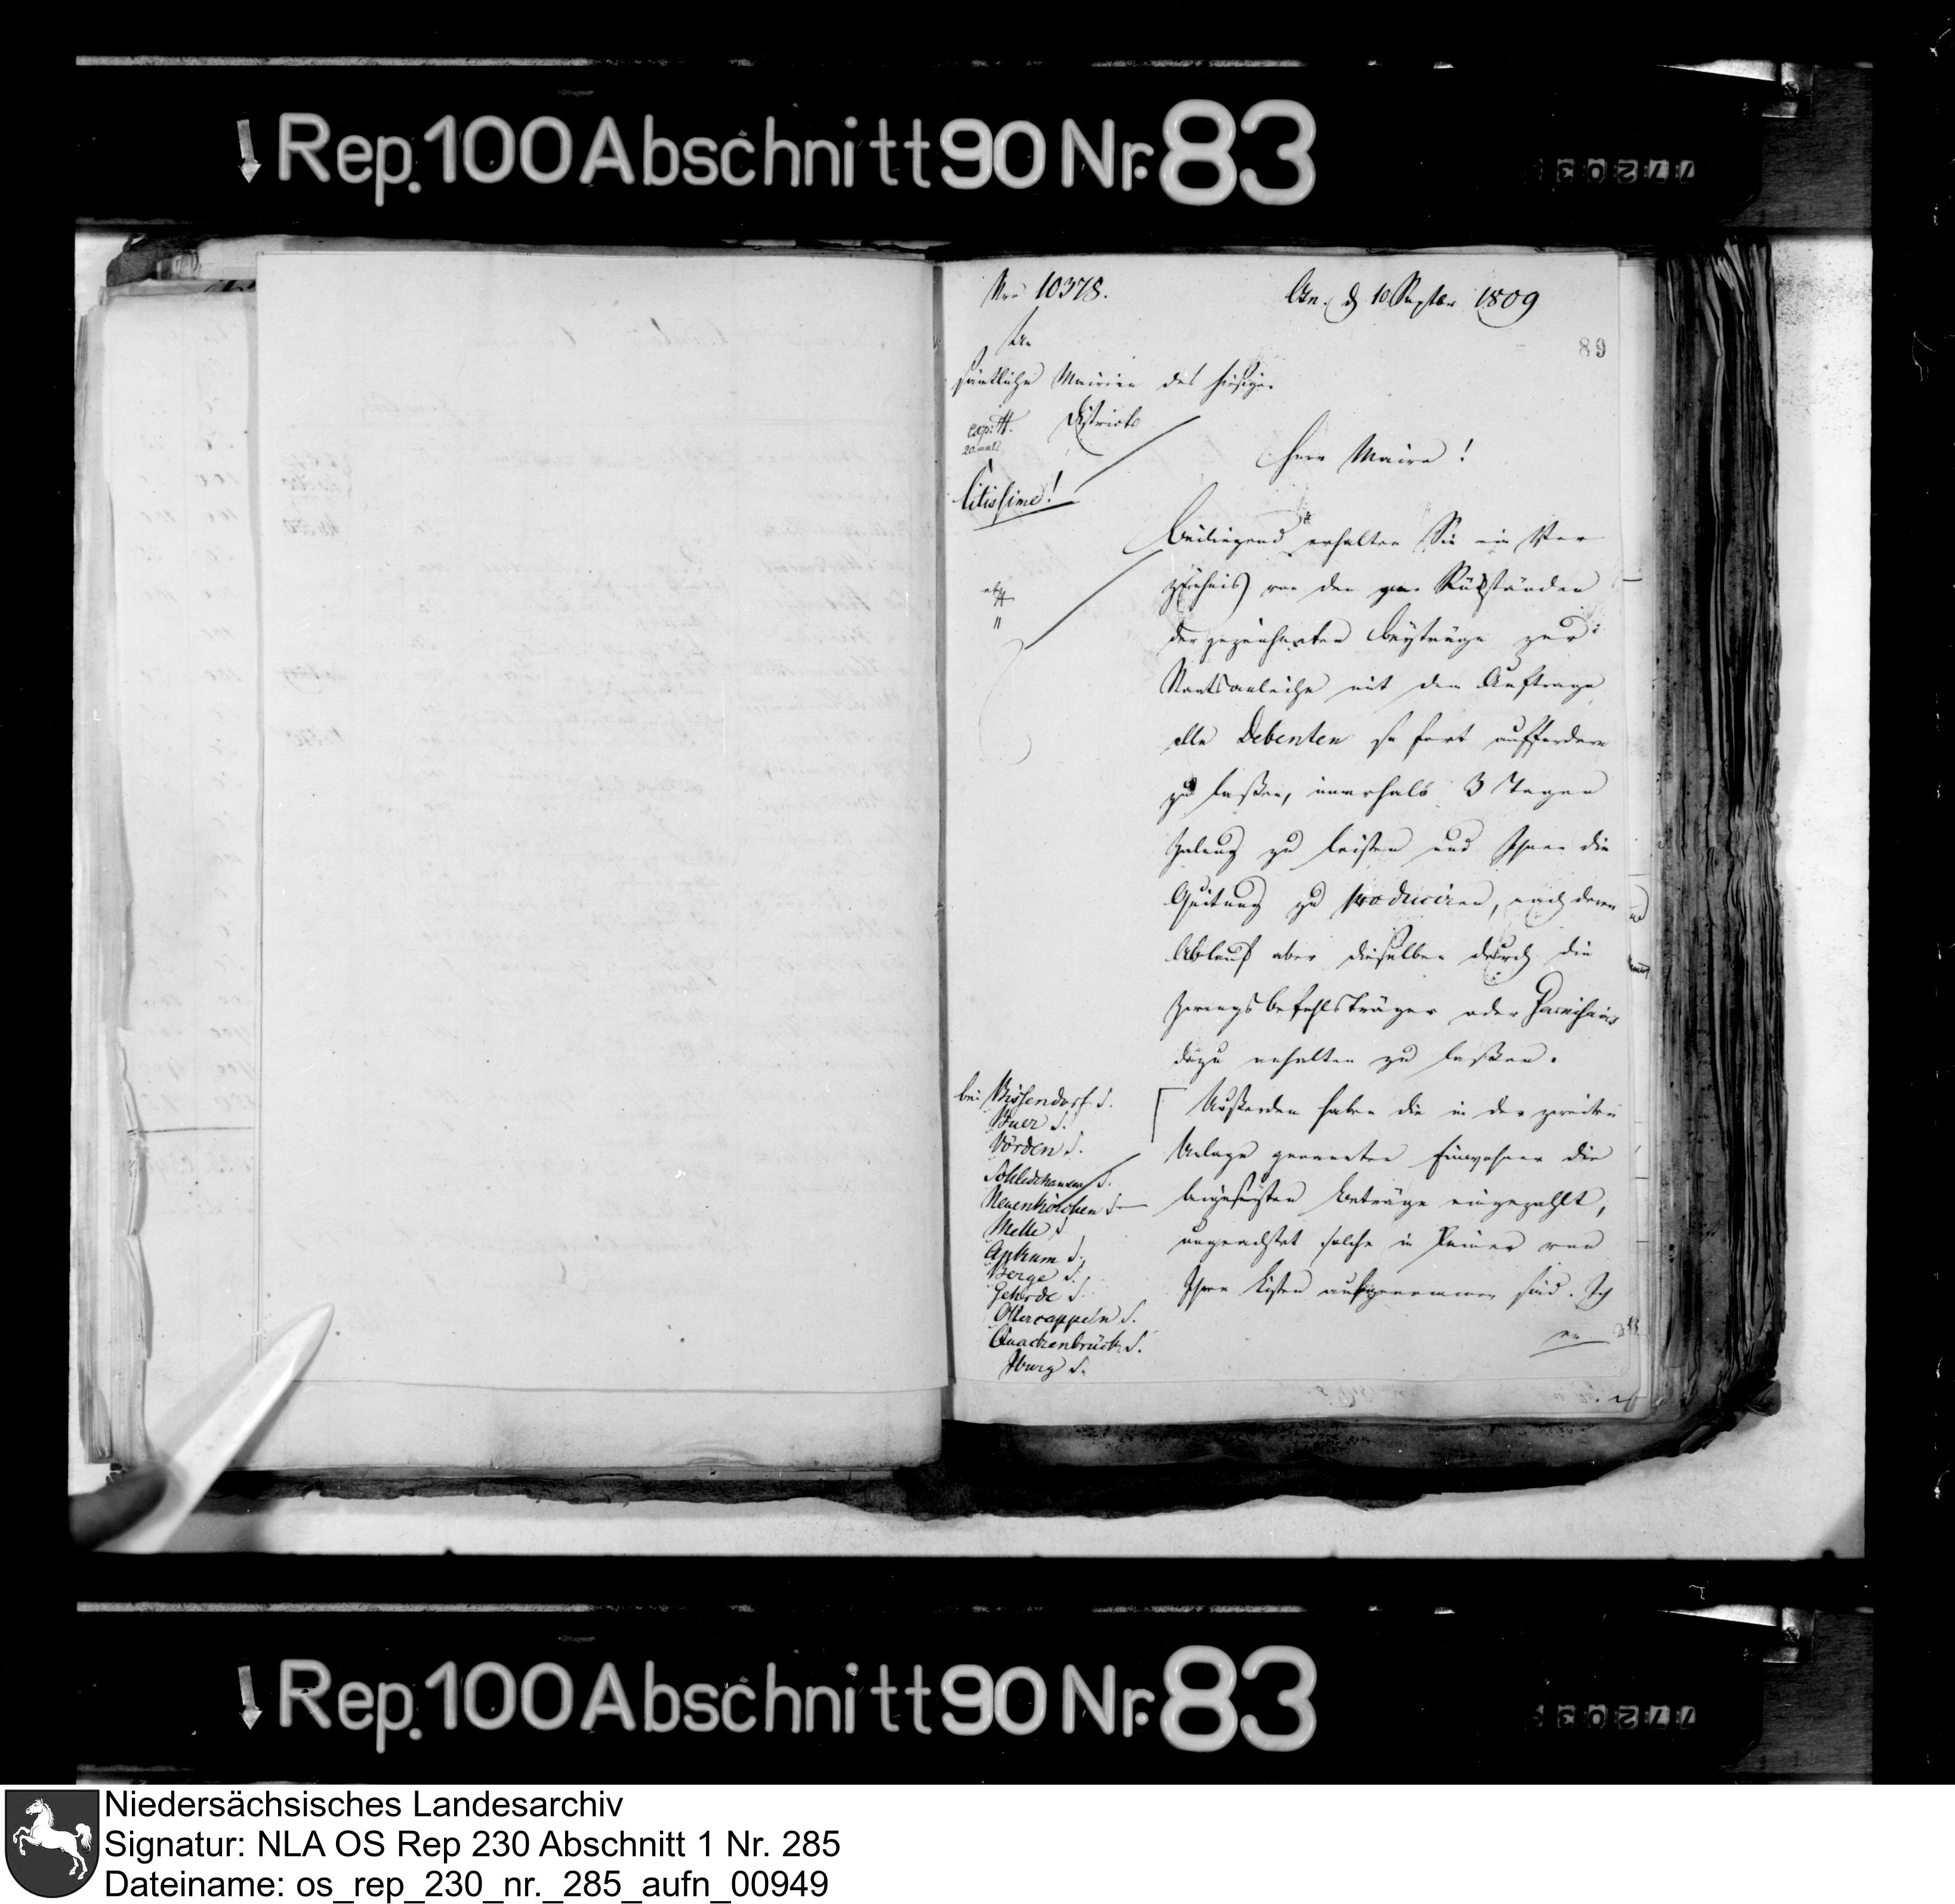 Rep. 100 Abschnitt 90 Nr. 83
Nro 10378.
Osn. d 10 Septbr 1809
89
An
sämtliche Mairien des hiesigen
Districts
exp: H.
20. mal
Citissime!
Herr Maire!
Beiliegend erhalten Sie ein Ver
zeichnis von den Rükständen
der gezeichneten Beyträge zur
Staatsanleihe mit dem Auftrage
alle Debenten so fort auffordern
zu laßen, innerhalb 3 Tagen
Zalung zu leisten und Ihnen die
Quitung zu produciren, nach deren
Ablauf aber dieselben durch die
Zwangsbefehlsträger oder Garnisairs
dazu anhalten zu laßen.
bei Bissendorf S.
Buer S.
Vörden S.
Schledehausen S.
Neuenkirchen S
Melle S
Ankum S.
Berge S.
Gehrde S.
Ostercappeln S.
Quackenbrück S.
Iburg S.
Außerdem haben die in der zweiten
Anlage genannten Einwohner die
beigesezten Beträge eingezahlt,
ungeachtet solche in keiner von
Ihren Listen aufgenommen sind. Ich
Rep. 100 Abschnitt 90 Nr. 83
Niedersächsisches Landesarchiv
Signatur: NLA OS Rep 230 Abschnitt 1 Nr. 285
Dateiname: os_rep_230_nr._285_aufn_00949